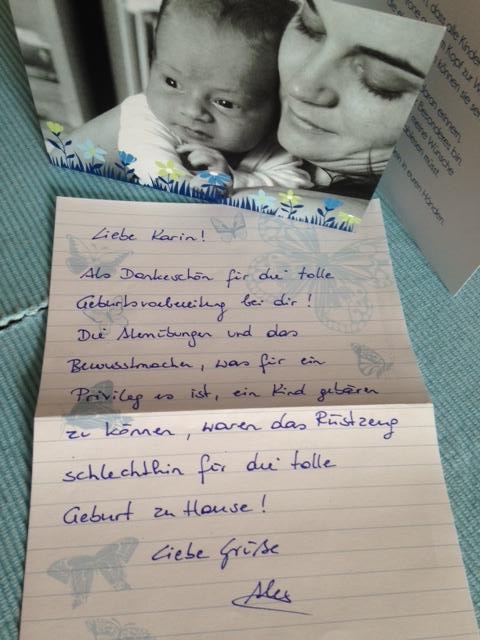 dass alle Kinder
Kopf zur W
können sie se
daran erinnern
besonderes bin
meine Wünsche
in euren Händen.
Liebe Karin!
Als Dankeschön für die tolle
Geburtsvorbereitung bei dir!
Die Atemübungen und das
Bewusstmachen, was für ein
Privileg es ist, ein Kind gebären
zu können, waren das Rüstzeug
schlechthin für die tolle
Geburt zu Hause!
Liebe Grüße
Alex